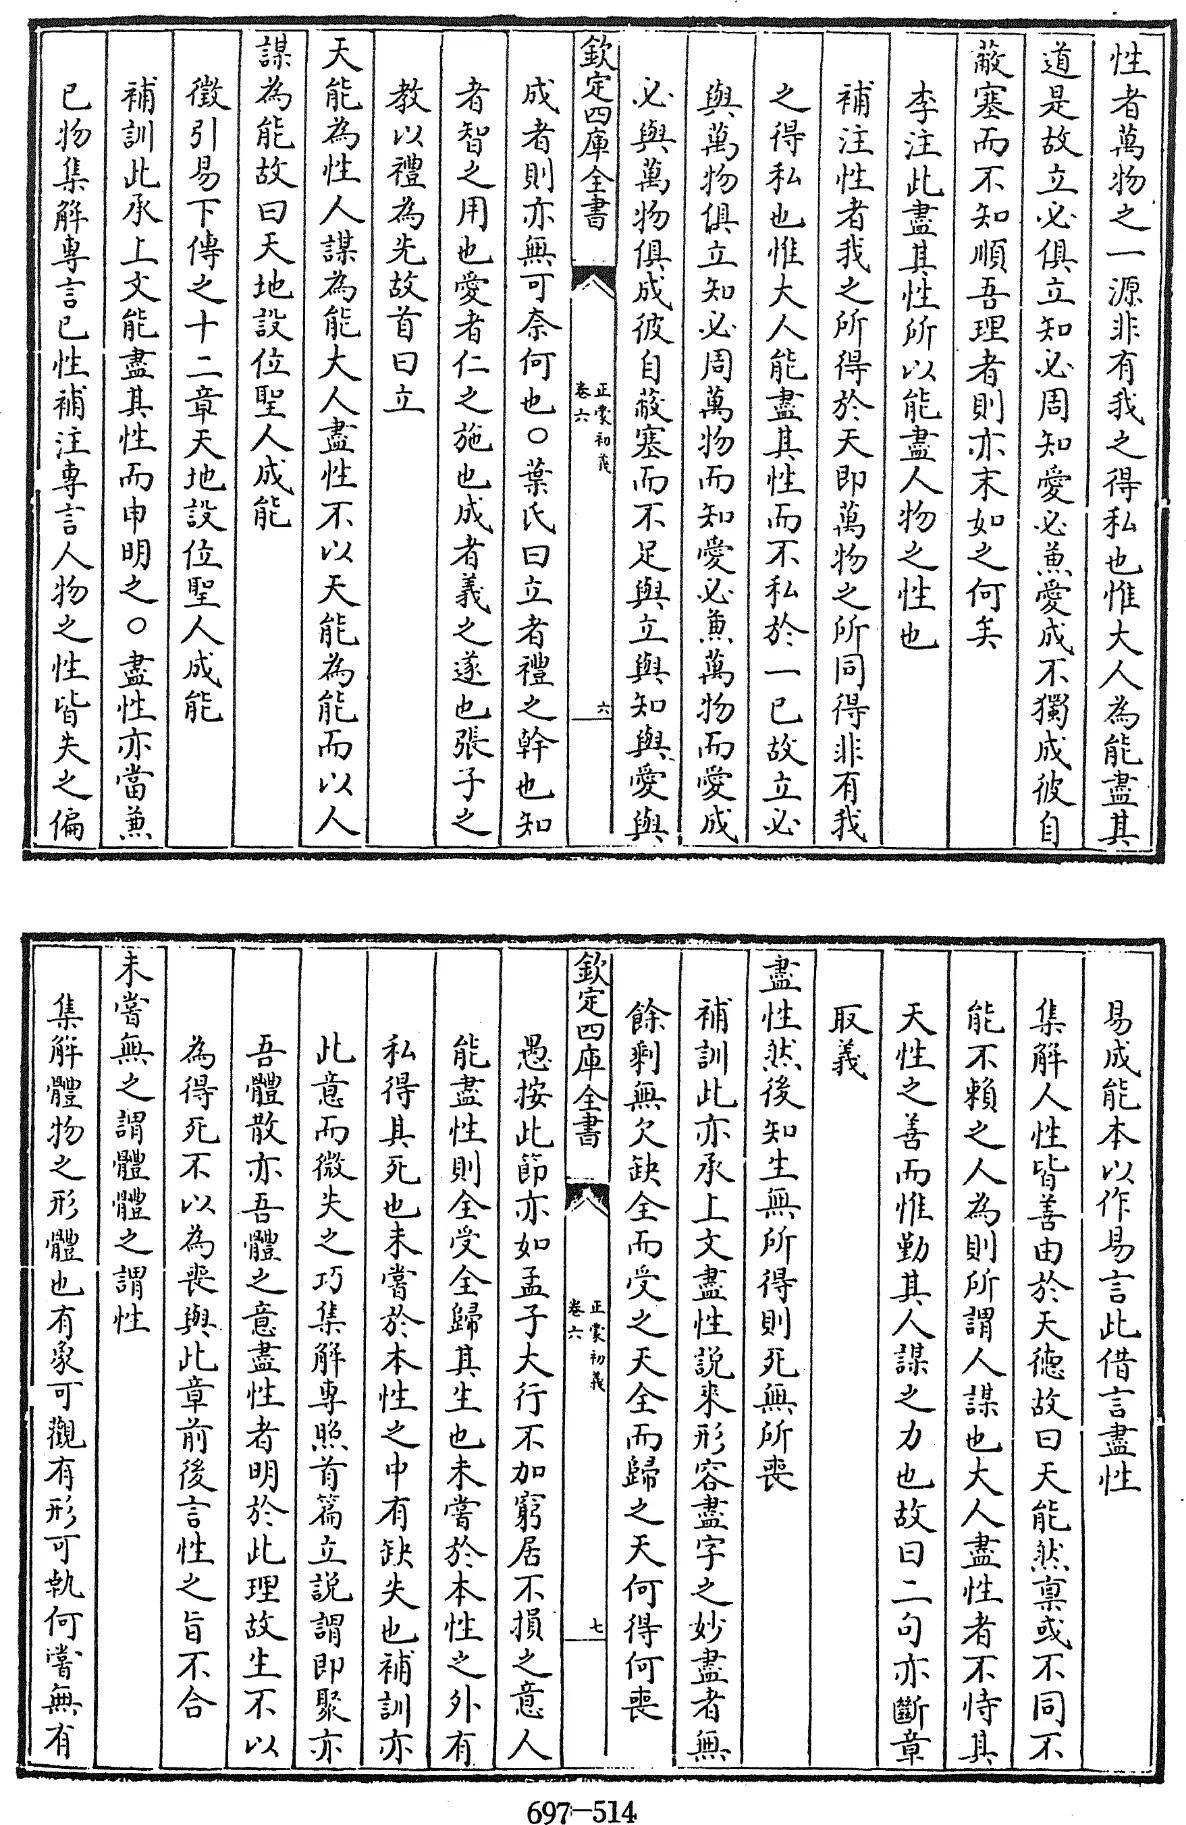 性者萬物之一源非有我之得私也惟大人為能盡其
道是故立必俱立知必周知愛必兼愛成不獨成彼自
蔽塞而不知順吾理者則亦末如之何矣
李注此盡其性所以能盡人物之性也
補注性者我之所得於天即萬物之所同得非有我
之得私也惟大人能盡其性而不私於一己故立必
與萬物俱立知必周萬物而知愛必兼萬物而愛成
必與萬物俱成彼自蔽塞而不足與立與知與愛與
欽定四庫全書
正蒙初義
卷六
六
成者則亦無可奈何也○葉氏曰立者禮之幹也知
者智之用也愛者仁之施也成者義之遂也張子之
教以禮為先故首曰立
天能為性人謀為能大人盡性不以天能為能而以人
謀為能故曰天地設位聖人成能
徵引易下傳之十二章天地設位聖人成能
補訓此承上文能盡其性而申明之○盡性亦當兼
己物集解專言己性補注專言人物之性皆失之偏
易成能本以作易言此借言盡性
集解人性皆善由於天德故曰天能然禀或不同不
能不賴之人為則所謂人謀也大人盡性者不恃其
天性之善而惟勤其人謀之力也故曰二句亦斷章
取義
盡性然後知生無所得則死無所喪
補訓此亦承上文盡性說來形容盡字之妙盡者無
餘剩無欠缺全而受之天全而歸之天何得何喪
欽定四庫全書
正蒙初義
卷六
七
愚按此節亦如孟子大行不加窮居不損之意人
能盡性則全受全歸其生也未嘗於本性之外有
私得其死也未嘗於本性之中有缺失也補訓亦
此意而微失之巧集解專照首篇立說謂即聚亦
吾體散亦吾體之意盡性者明於此理故生不以
為得死不以為喪與此章前後言性之旨不合
未嘗無之謂體體之謂性
集解體物之形體也有象可觀有形可執何嘗無有
697-514